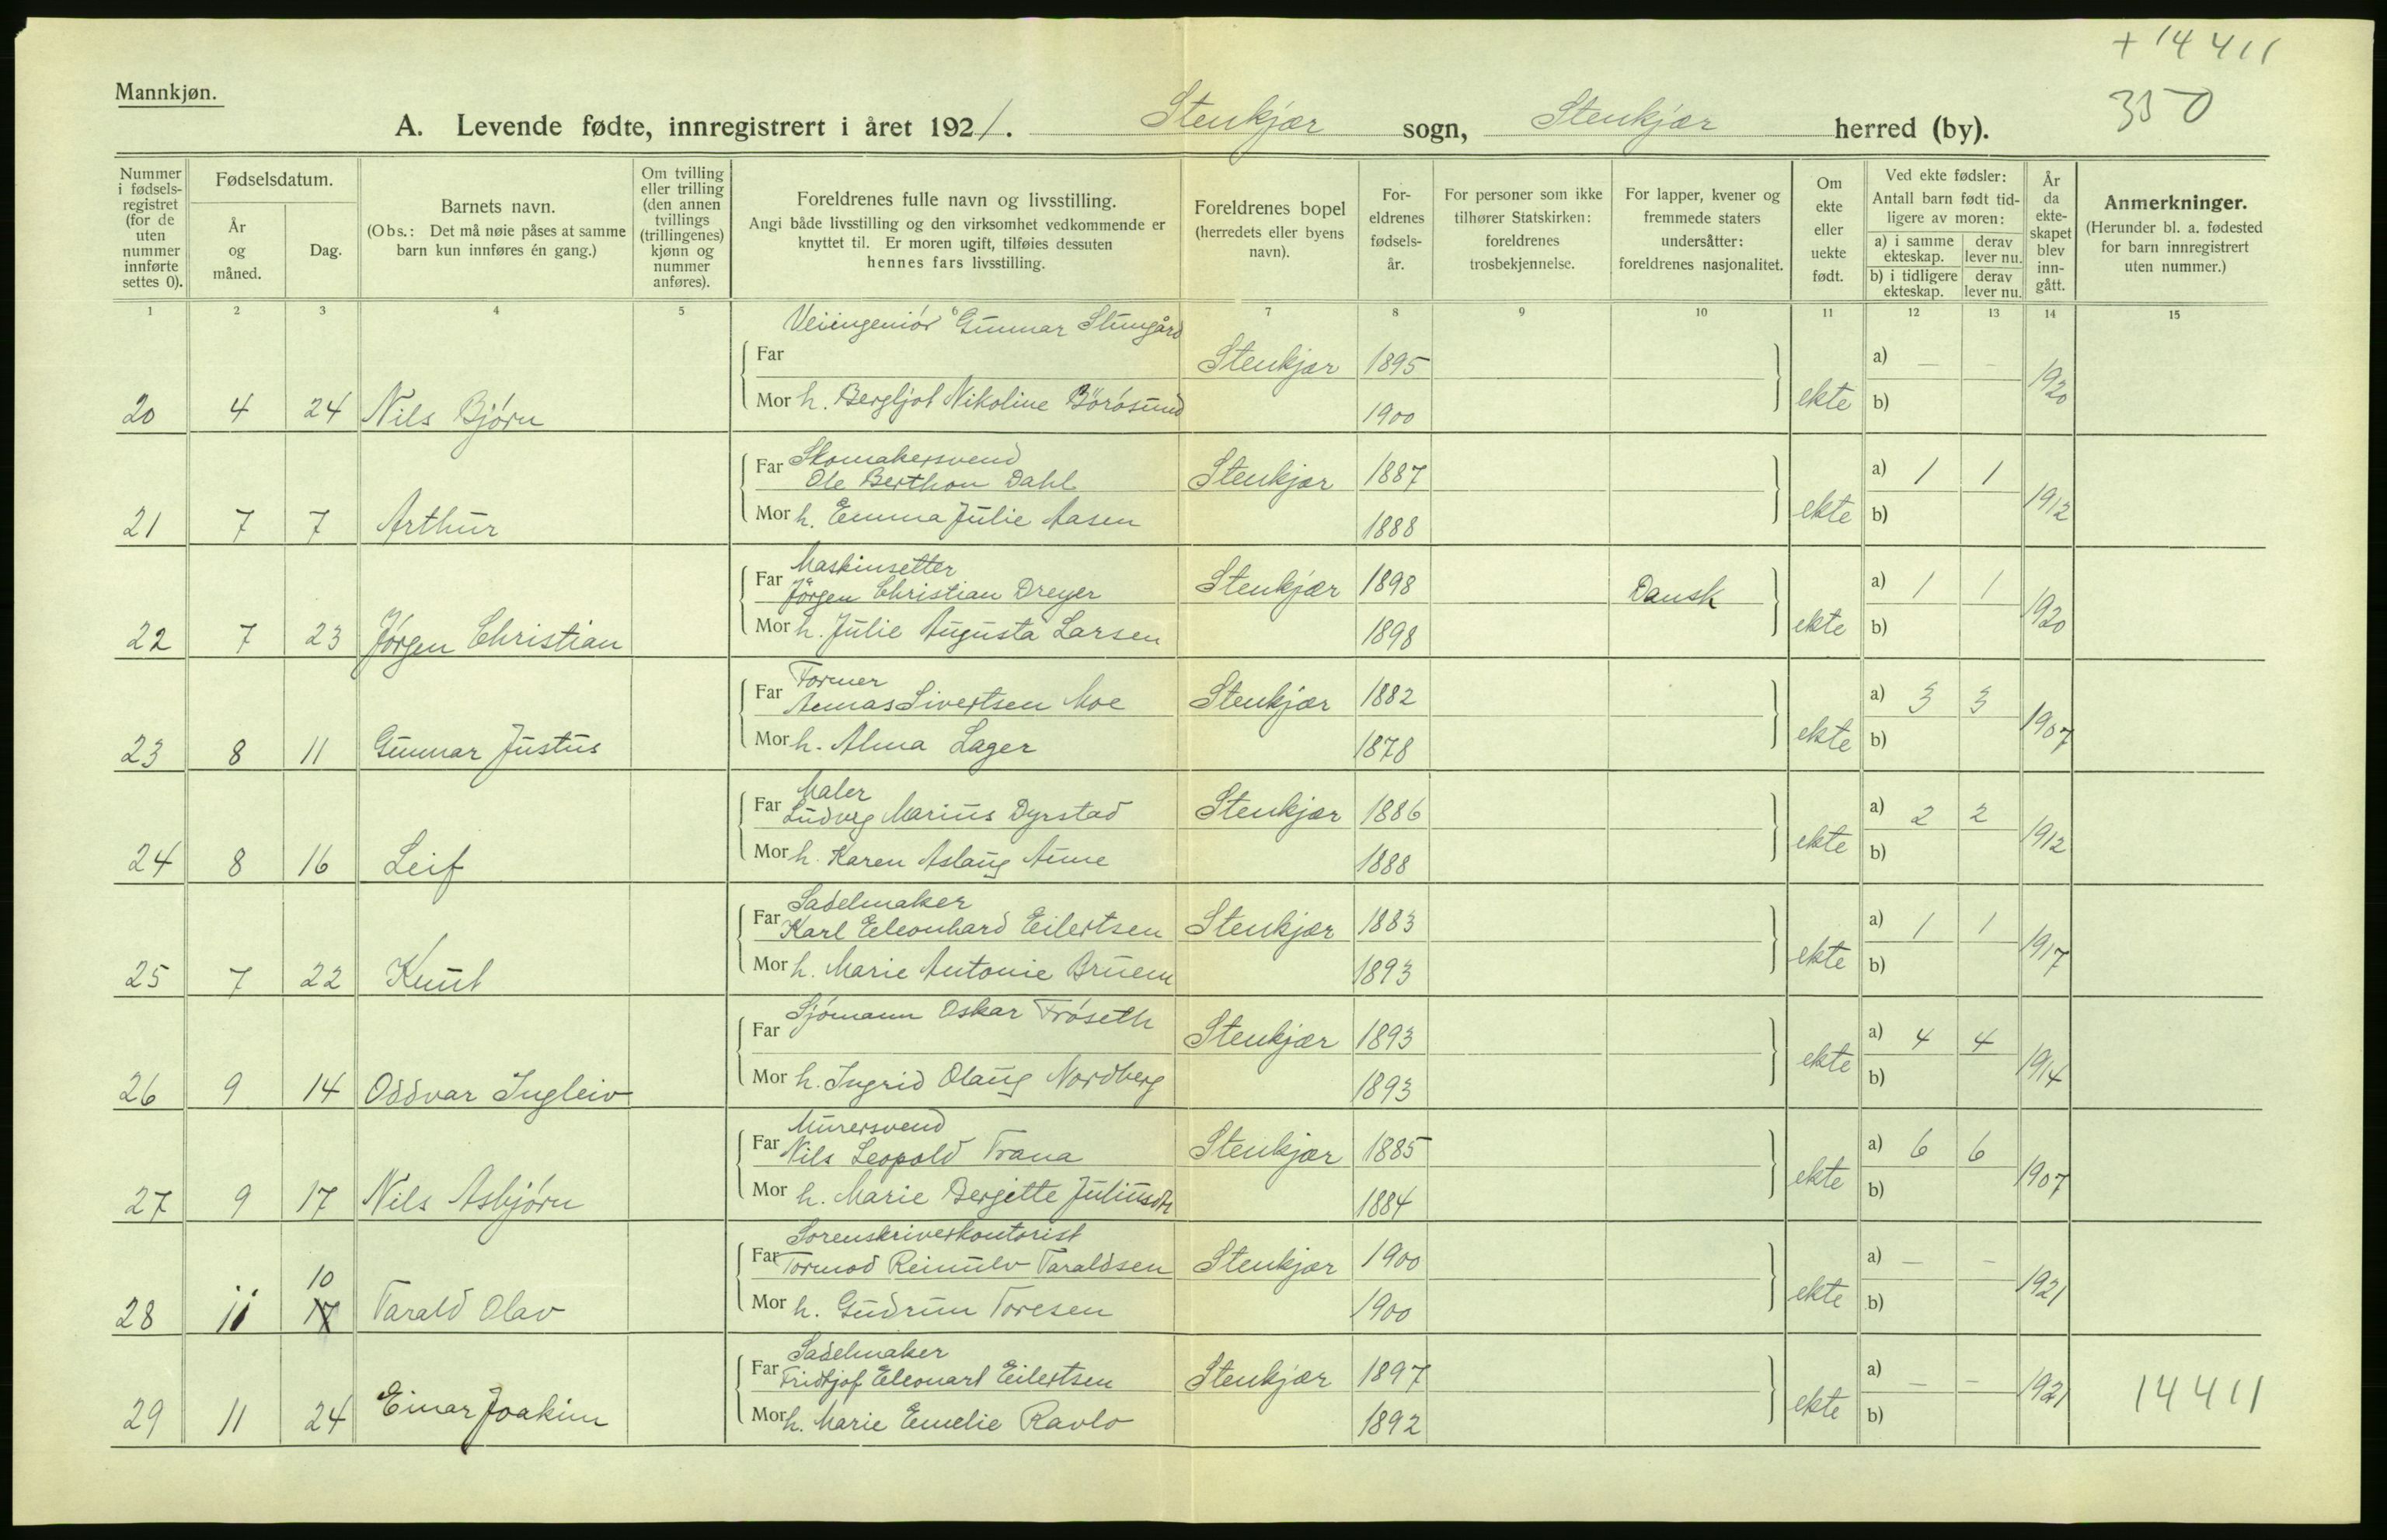 + 14 411
350
Mannkjøn.
A. Levende fødte, innregistrert i året 1921. Stenkjær sogn, Stenkjær herred (by).
Nummer i fødsels-registret (for de uten nummer innførte settes 0).
Fødselsdatum.
År og måned.
Dag.
Barnets navn.
(Obs.: Det må nøie påses at samme barn kun innføres én gang.)
Om tvilling eller trilling (den annen tvillings (trillingenes) kjønn og nummer anføres).
Foreldrenes fulle navn og livsstilling.
Angi både livsstilling og den virksomhet vedkommende er knyttet til. Er moren ugift, tilføies dessuten hennes fars livsstilling.
Foreldrenes bopel (herredets eller byens navn).
For-eldrenes fødsels-år.
For personer som ikke tilhører Statskirken: foreldrenes trosbekjennelse.
For lapper, kvener og fremmede staters undersåtter: foreldrenes nasjonalitet.
Om ekte eller uekte født.
Ved ekte fødsler: Antall barn født tid-ligere av moren:
a) i samme ekteskap. derav lever nu.
b) i tidligere ekteskap. derav lever nu.
År da ekte-skapet blev inn-gått.
Anmerkninger.
(Herunder bl. a. fødested for barn innregistrert uten nummer.)
1 2 3 4 5 6 7 8 9 10 11 12 13 14 15
Veiingeniør Gunnar
Far Stenkjær 1895 a) — — 1920
20 4 24 Nils Bjørn Mor h. Bergljot Nikoline Børøsund 1900 ekte b)
Skomakersvend
Far Ole Berthon Dahl Stenkjær 1887 a) 1 1 1912
21 7 7 Arthur Mor h. Emma Julie Aasen 1888 ekte b)
Maskinsetter
Far Jörgen Christian Dreyer Stenkjær 1898 Dansk a) 1 1 1920
22 7 23 Jörgen Christian Mor h. Julie Augusta Larsen 1898 ekte b)
Former
Far Sivertsen Moe Stenkjær 1882 a) 3 3 1907
23 8 11 Gunnar Justus Mor h. Alma Lager 1878 ekte b)
Maler
Far Ludvig Marius Dyrstad Stenkjær 1886 a) 2 2 1912
24 8 16 Leif Mor h. Karen Aslaug Aune 1888 ekte b)
Sadelmaker
Far Karl Eleonhard Eilertsen Stenkjær 1883 a) 1 1 1917
25 7 22 Knut Mor h. Marie Antonie Bruem 1893 ekte b)
Sjømann Oskar Frøseth
Far Stenkjær 1893 a) 4 4 1914
26 9 14 Oddvar Ingleiv Mor h. Ingrid Olaug Nordberg 1893 ekte b)
Murersvend
Far Nils Leopold Trana Stenkjær 1885 a) 6 6 1907
27 9 17 Nils Asbjørn Mor h. Marie Bergitte Juliusdtr 1884 ekte b)
Sorenskriverkontorist
Far Tormod Reinulv Taraldsen Stenkjær 1900 a) — — 1921
10
28 11 17 Tarald Olav Mor h. Gudrun Toresen 1900 ekte b)
Sadelmaker
Far Fridtjof Eleonart Eilertsen Stenkjær 1897 a) — — 1921 14411
29 11 24 Einar Joakim Mor h. Marie Emelie Ravlo 1892 ekte b)